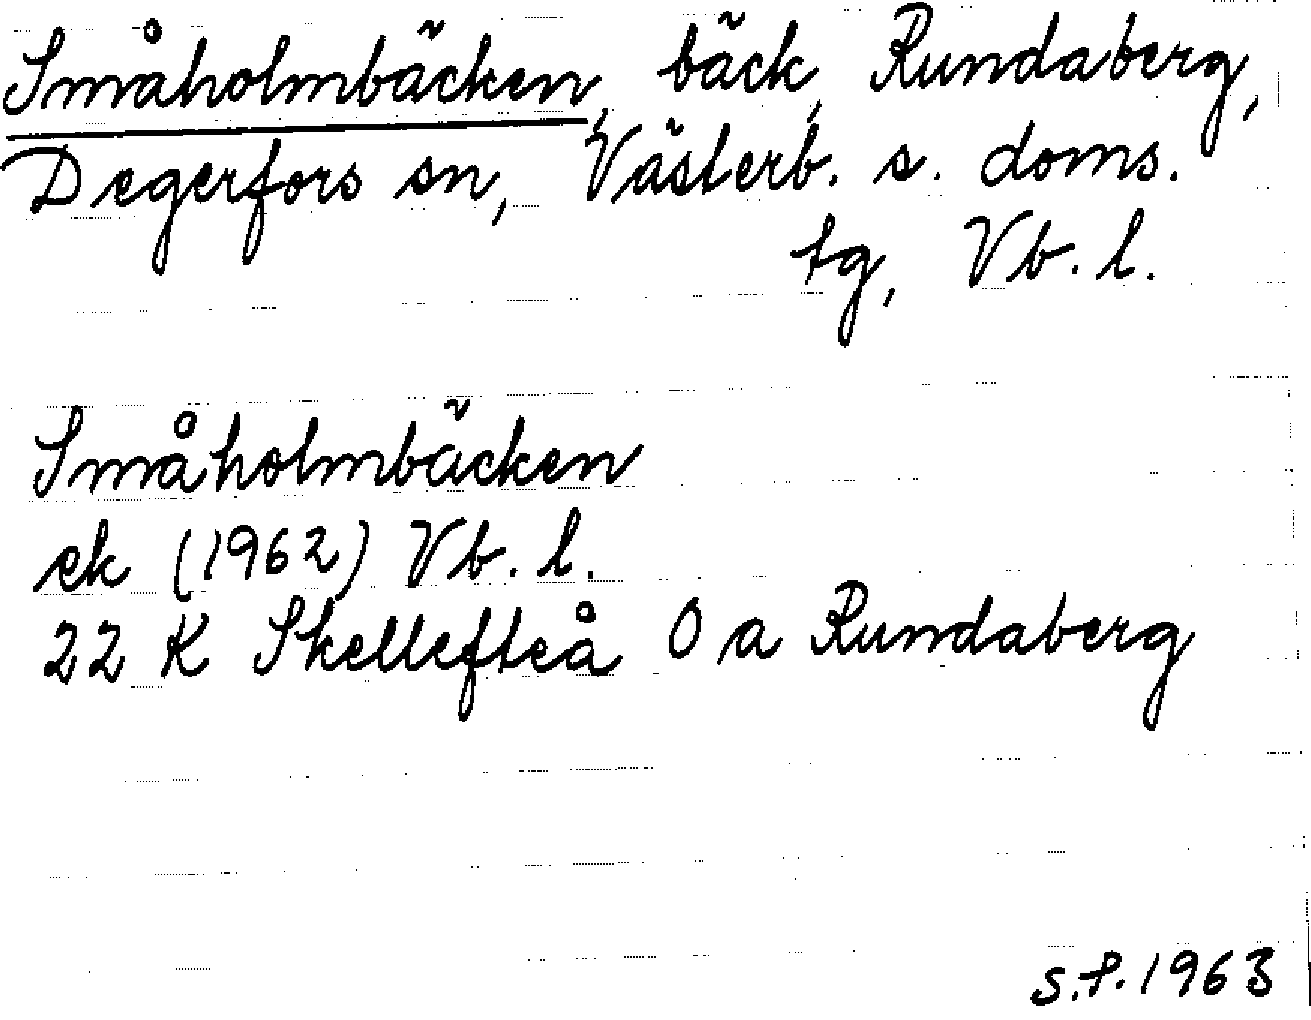 Småholmbäcken, bäck, Rundaberg,
Degerfors sn, Västerb. s. doms.
tg, Vb. l.
Småholmbäcken
ek (1962) Vb. l.
22 K Skellefteå 0 a Rundaberg
S.P. 1963